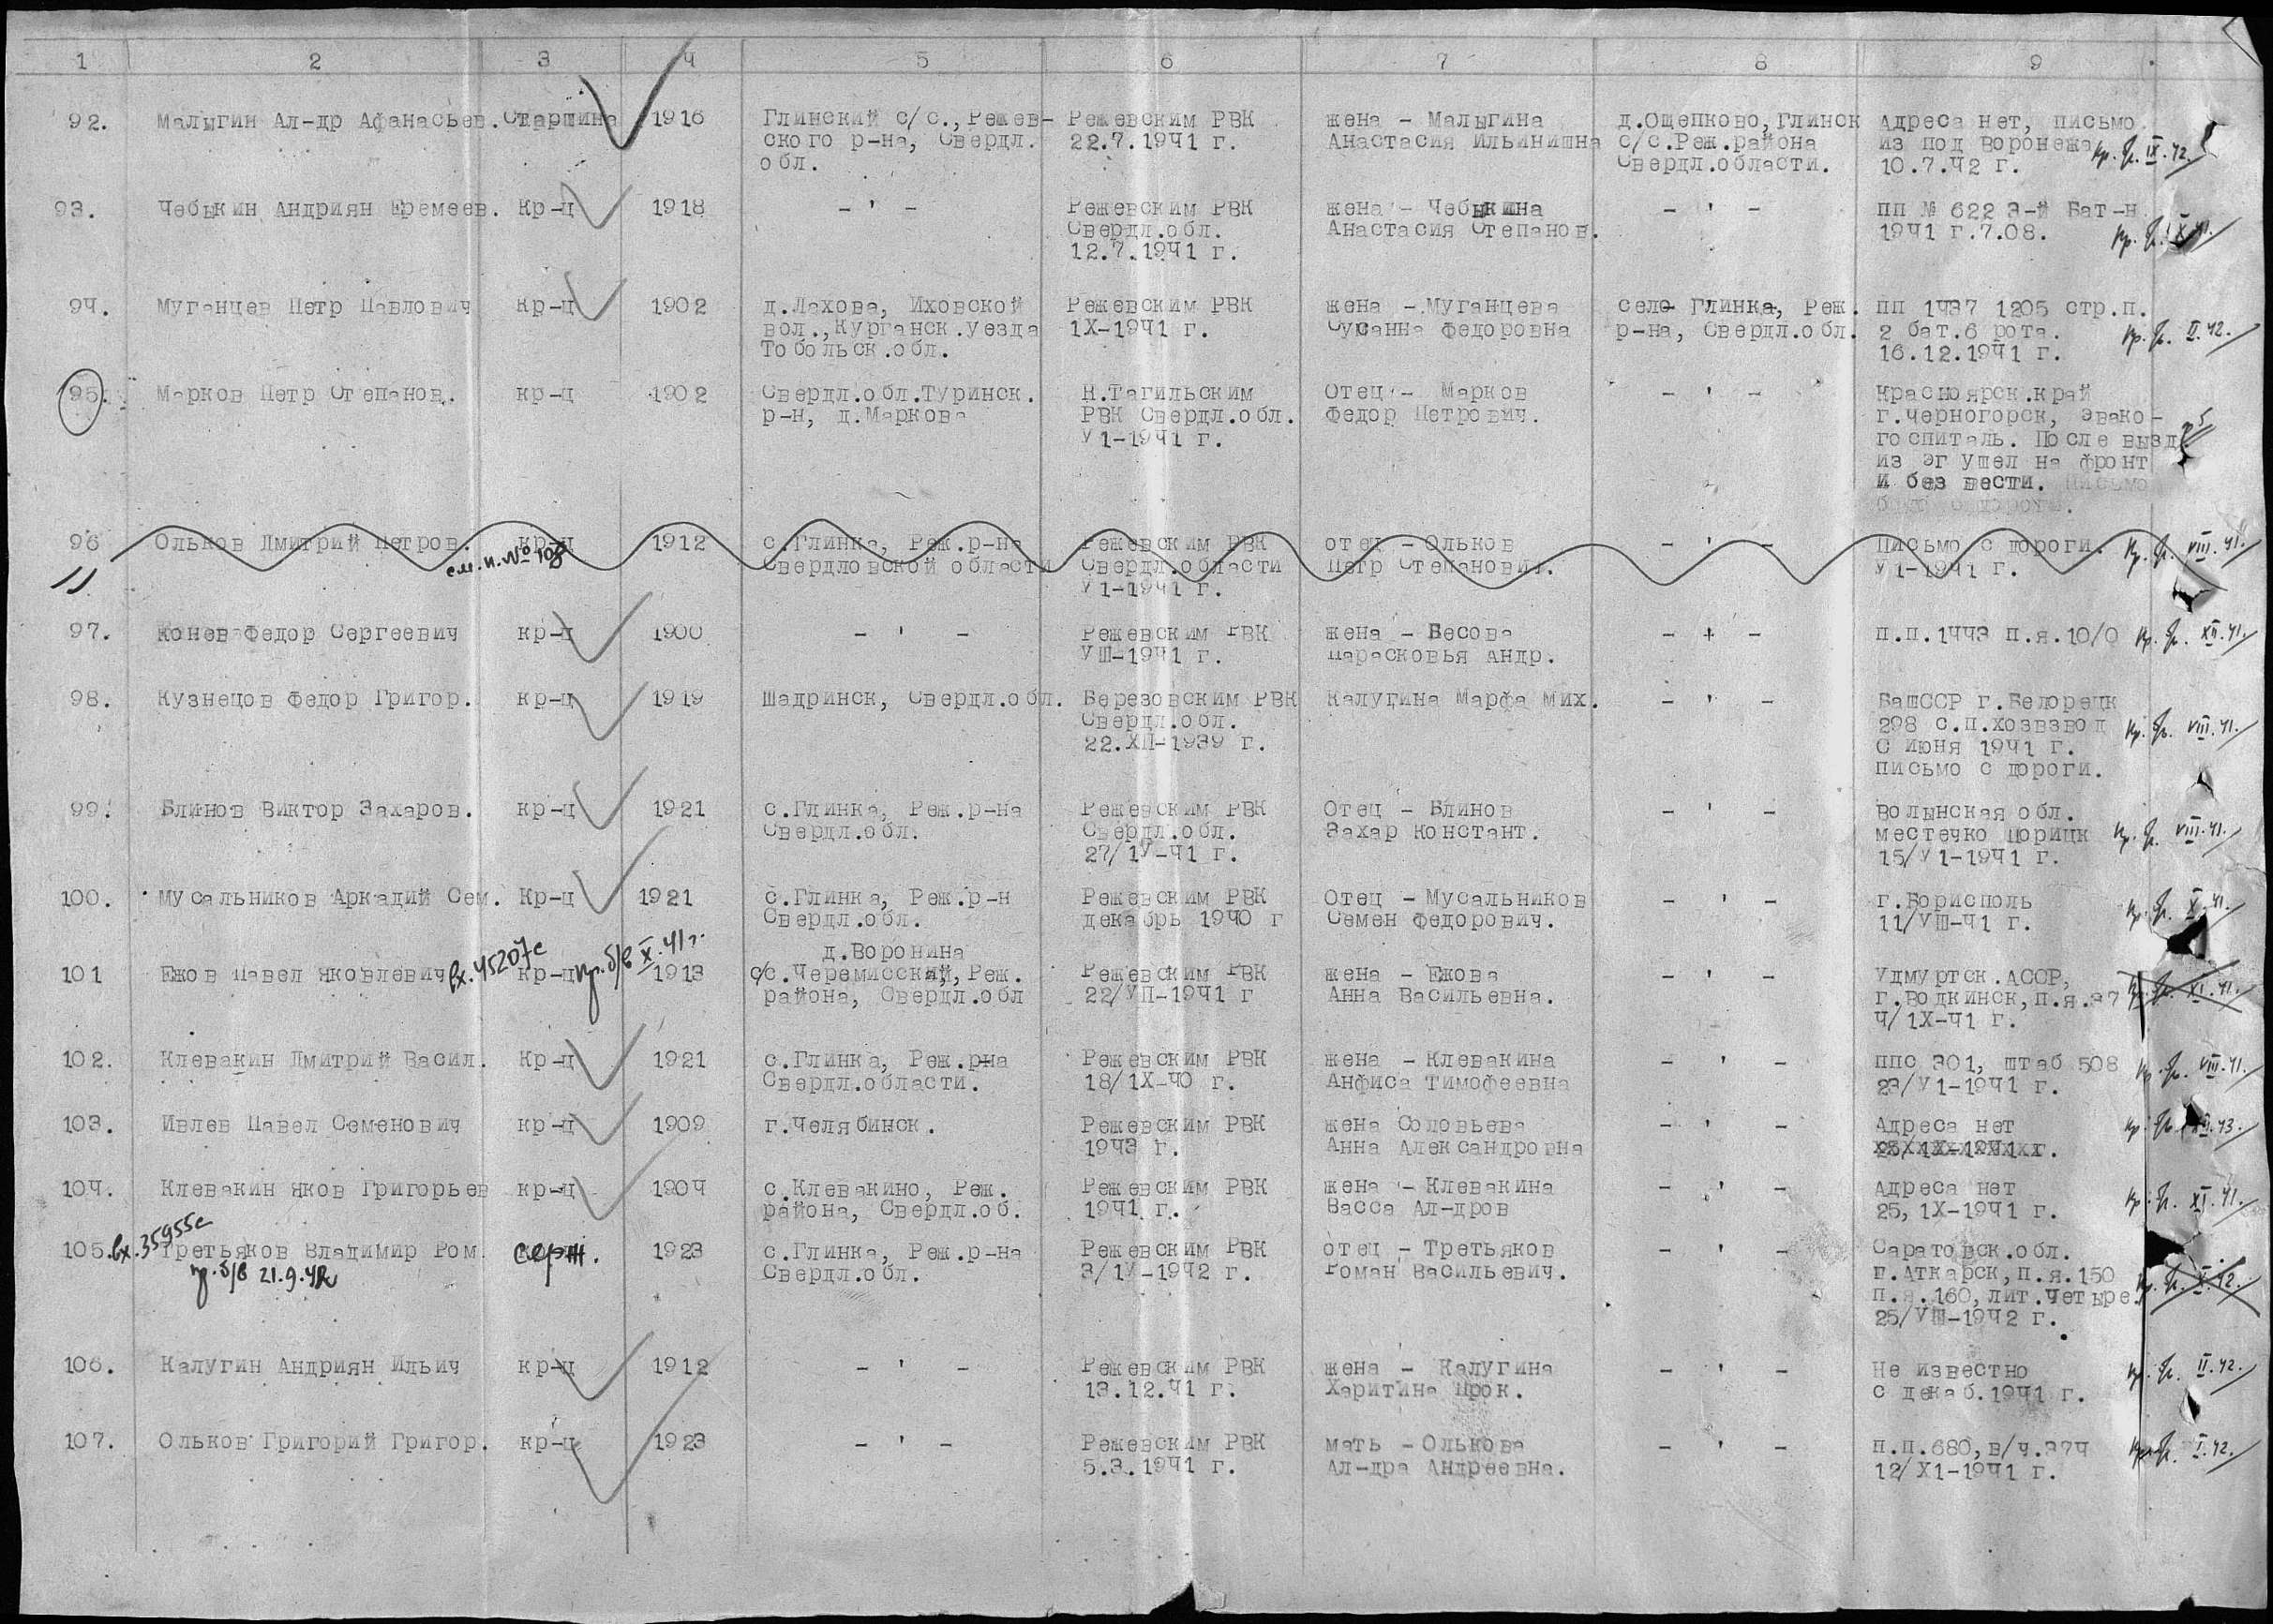 1 2 3 4 5 6 7 8 9
92. Малыгин Ал-др Афанасьев. Старшина 1916 Глинский с/с., Режев- Режевским РВК жена - Малыгина д.Ощепково, Глинск Адреса нет, письмо
ского р-на, Свердл. 22.7.1941 г. Анастасия Ильинишна с/с.Реж.района из под Воронежа
обл. Свердл.области. 10.7.42 г.
93. Чебыкин Андриян Еремеев. Кр-ц 1918 - " - Режевским РВК жена - Чебыкина - " - ПП № 622 3-й Бат-н
Свердл.обл. Анастасия Степанов. 1941 г.7.08.
12.7.1941 г.
94. Муганцев Петр Павлович кр-ц 1902 д.Лахова, Иховской Режевским РВК жена - Муганцева село Глинка, Реж. ПП 1437 1205 стр.п.
вол.,Курганск.уезда 1Х-1941 г. Сусанна Федоровна р-на, Свердл.обл. 2 бат.6 рота.
Тобольск.обл. 16.12.1941 г.
95. Марков Петр Степанов. кр-ц 1902 Свердл.обл.Туринск. Н.Тагильским Отец - Марков - " - Красноярск.край
р-н, д.Маркова РВК Свердл.обл. Федор Петрович. г.Черногорск, эвако-
У1-1941 г. госпиталь. После вызд.
из эг ушел на фронт
и без вести. Письмо
было с дороги.
96 Ольков Дмитрий Петров. кр-ц 1912 с.Глинка, Реж.р-на Режевским РВК отец - Ольков - " - Письмо с дороги.
см.п.№108 Свердловской области Свердл.области Петр Степанович. У1-1941 г.
У1-1941 г.
97. Конев Федор Сергеевич кр-ц 1900 - " - Режевским РВК жена - Бесова - " - П.П.1443 п.я.10/0
УШ-1941 г. Парасковья Андр.
98. Кузнецов Федор Григор. кр-ц 1919 Шадринск, Свердл.обл. Березовским РВК Калугина Марфа Мих. - " - БашССР г.Белорецк
Свердл.обл. 298 с.п.хозвзвод
22.ХП-1939 г. С июня 1941 г.
письмо с дороги.
99. Блинов Виктор Захаров. кр-ц 1921 с.Глинка, Реж.р-на Режевским РВК Отец - Блинов - " - Волынская обл.
Свердл.обл. Свердл.обл. Захар Констант. местечко Порицк
27/1У-41 г. 15/У1-1941 г.
100. Мусальников Аркадий Сем. Кр-ц 1921 с.Глинка, Реж.р-н Режевским РВК Отец - Мусальников - " - г.Борисполь
Свердл.обл. декабрь 1940 г Семен Федорович. 11/УШ-41 г.
д.Воронина
101 Ежов Павел Яковлевич вх.45207с кр-ц пр.б/в X.41г. 1913 с/с.Черемисский, Реж. Режевским РВК жена - Ежова - " - Удмуртск.АССР,
района, Свердл.обл 22/УП-1941 г Анна Васильевна. г.Водкинск,п.я.37
4/1Х-41 г.
102. Клевакин Дмитрий Васил. Кр-ц 1921 с.Глинка, Реж.рна Режевским РВК жена - Клевакина - " - ппс 301, штаб 508
Свердл.области. 18/1Х-40 г. Анфиса Тимофеевна 23/У1-1941 г.
103. Ивлев Павел Семенович кр-ц 1909 г.Челябинск. Режевским РВК жена Соловьева - " - Адреса нет
1943 г. Анна Александровна 25/1Х-1941 г.
104. Клевакин Яков Григорьев кр-ц 1904 с.Клевакино, Реж. Режевским РВК жена - Клевакина - " - Адреса нет
района, Свердл.об. 1941 г. Васса Ал-дров 25,1Х-1941 г.
105. вх.35955с Третьяков Владимир Ром. серж. 1923 с.Глинка, Реж.р-на Режевским РВК отец - Третьяков - " - Саратовск.обл.
пр.б/в 21.9.42 Свердл.обл. 3/1У-1942 г. Роман Васильевич. г.Аткарск,п.я.150
п.я.160,лит.четыре.
25/УШ-1942 г.
106. Калугин Андриян Ильич кр-ц 1912 - " - Режевским РВК жена - Калугина - " - Не известно
13.12.41 г. Харитина Прок. с декаб.1941 г.
107. Ольков Григорий Григор. кр-ц 1923 - " - Режевским РВК мать - Олькова - " - П.П.680,в/ч.374
5.3.1941 г. Ал-дра Андреевна. 12/Х1-1941 г.